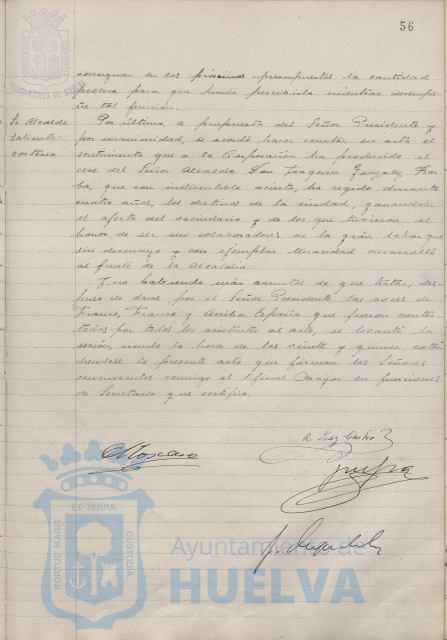 56
AYUNTAMIENTO DE HUELVA
consignar en los próximos presupuestos la cantidad
precisa para que pueda percibirla mientras desempe-
ñe tal función.
Sr. Alcalde
saliente:
cortesía
Por último, a propuesta del Señor Presidente y
por unanimidad, se acordó hacer constar en acta el
sentimiento que a la Corporación ha producido el
cese del Señor Alcalde Don Joaquín González Bar-
ba, que con indiscutible acierto, ha regido durante
cuatro años, los destinos de la ciudad, ganándose
el afecto del vecindario y de los que tuvieron el
honor de ser sus colaboradores en la gran labor que
sin desmayo y con ejemplar tenacidad desarrolló
al frente de la Alcaldía.
Y no habiendo más asuntos de que tratar, des-
pués de darse por el Señor Presidente las voces de
Franco, Franco y Arriba España que fueron contes-
tadas por todos los asistentes al acto, se levantó la
sesión, siendo la hora de las veinte y quince, exten-
diéndose la presente acta que firman los Señores
concurrentes conmigo el Oficial Mayor en funciones
de Secretario que certifico.
ET TERRÆ
PORTUS MARIS
CUSTODIA
Ayuntamiento de
HUELVA